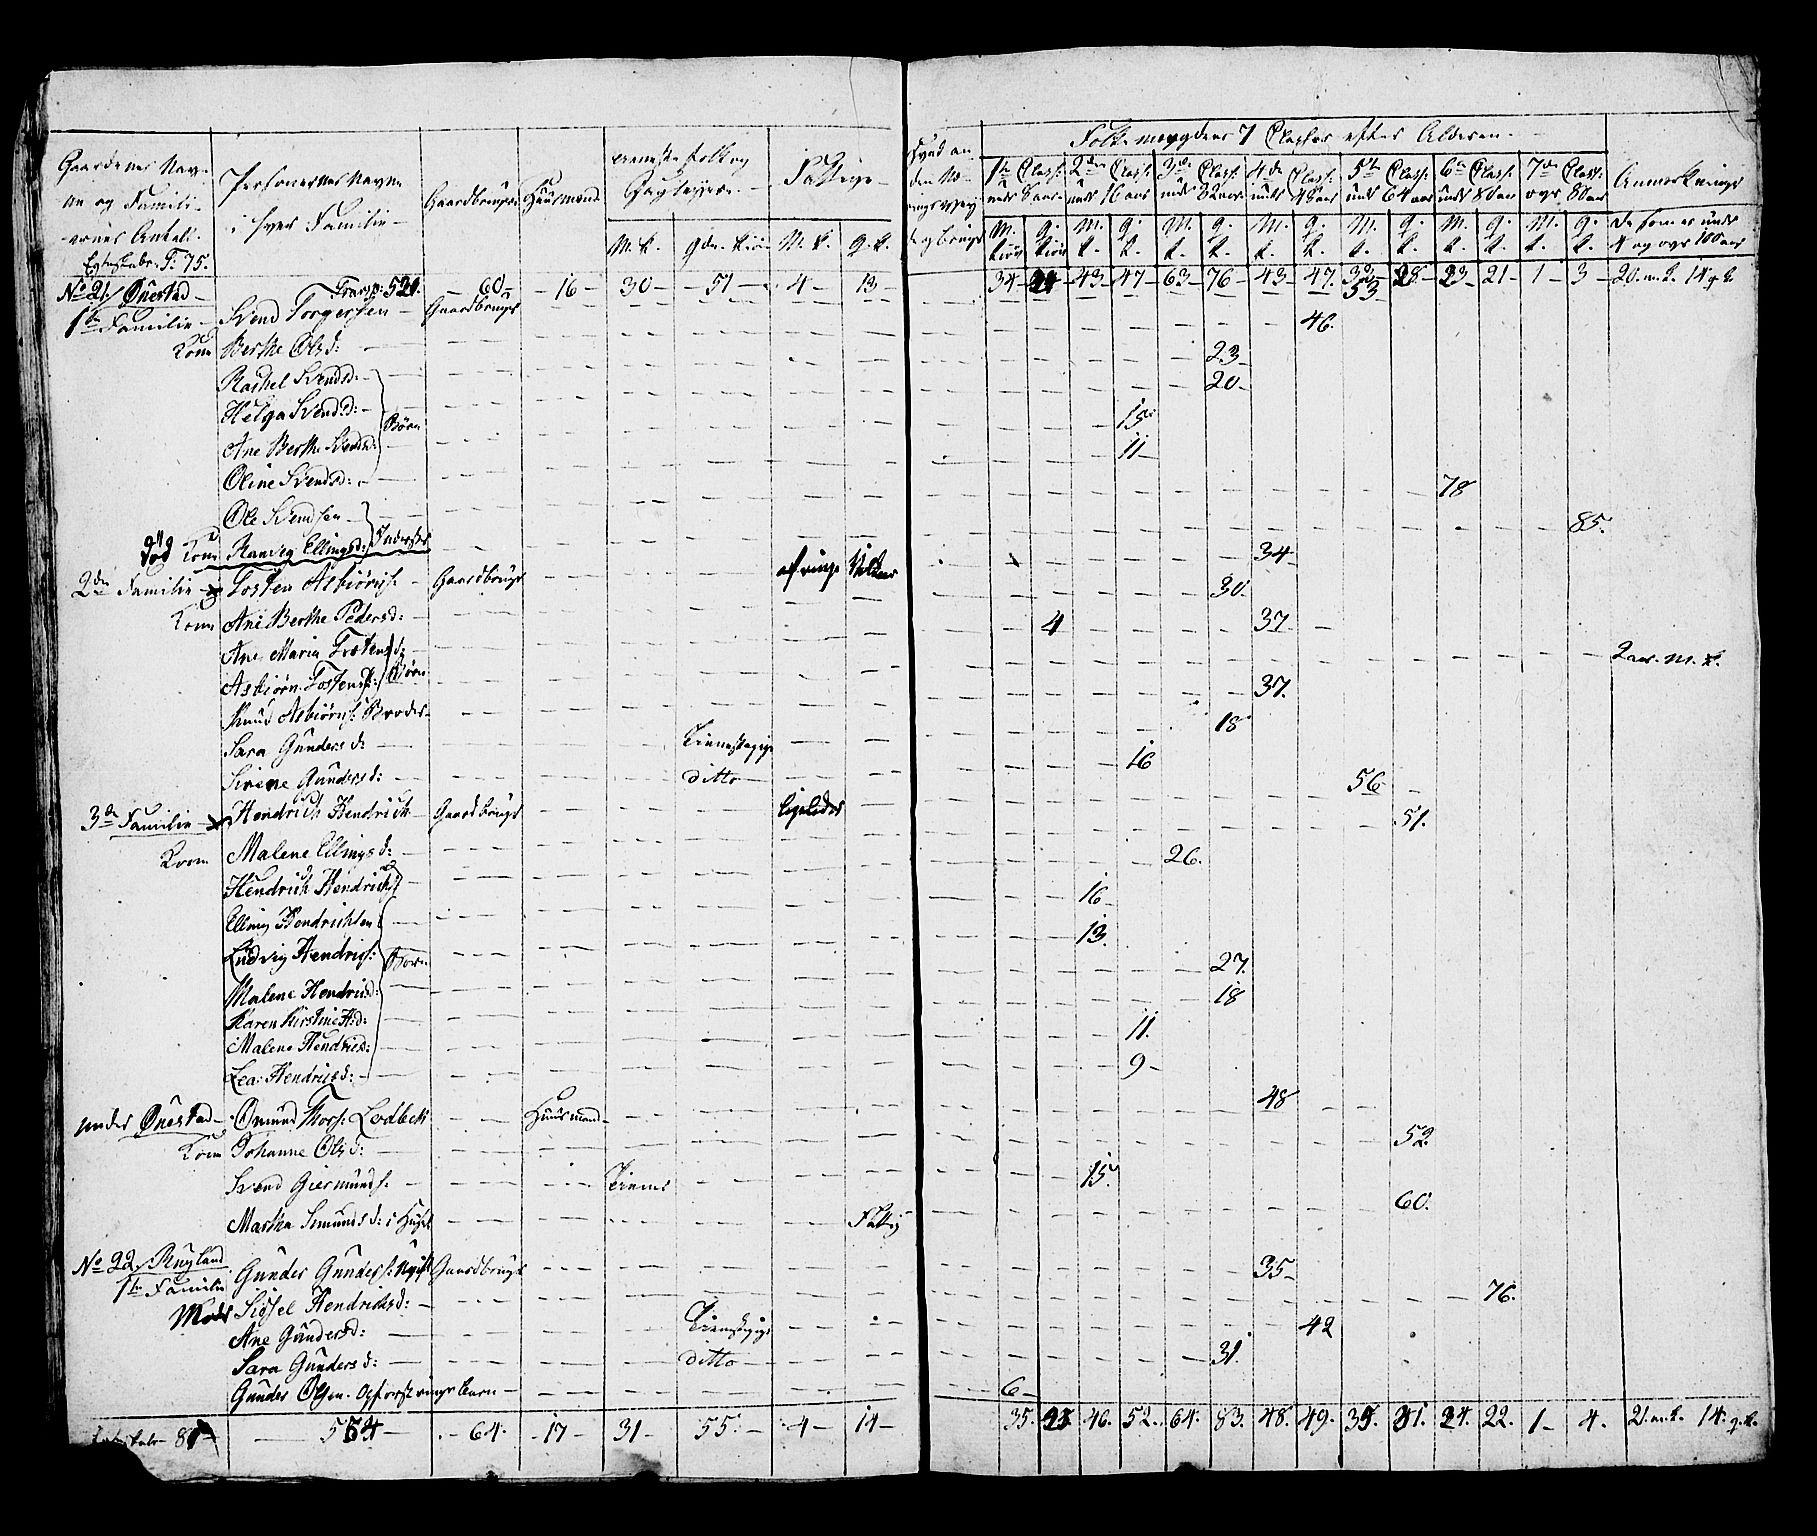 Gaardenes Nav-
ne og Famili-
ernes Antal.
Personernes Navne
i hver Familie
Gaardbruger
Huusmænd
Tieneste folk og
M. k.
Qde. kiön
Fattige
M. k. Q. k.
Folkemængdens 7 Classer efter Alderen
1te Class. under 8 aar
2den Class. under 16 aar
3de Class. under 32 aar
4de Class. under 48 aar
5te Class. under 64 aar
6te Class. under 80 aar
7de Class. over 80 aar
Anmerkninger
De som er under
4 og over 100 aar
Egteskaber T: 75.
Transp: 521. 60 16 30 51 4 13 34 43 47 63 76 43 47 28 23 21 1 3 20 m.k. 14 q.k.
No 21. Ønestad
1te Familie Svend Torgersen Gaardbruger 46.
Kone Berthe Olsd: 23
Rachel Svendsd: 20
Helga Svendsd: Børn 15
Ane Berthe Svendsd: 11
Oline Svendsd:
Ole Svendsen 78
död Kone Ranveg Ellingsd: 85.
2den Familie Tosten Asbiörns. Gaardbruger af ringe Vilkaar 34
Kone Ane Berthe Pedersd: 30
Ane Maria Tostensd: 4 37
Asbiörn Tostens: Börn 2 aar. M. k.
Knud Asbiörns: Broder 37.
Sara Gundersd: Tienestepige 18
Sirene Gundersd: ditto 16
3de Familie Hendrich Hendrich Gaardbruger ligeledes 56
Kone Malene Ellingsd: 51.
Hendrich Hendrichs: 26.
Elling Hendrichsen 16
Ludvig Hendrichs: Børn 13.
Malene Hendricsd: 27.
Karen Kirstine H:d: 18
Malene Hendricsd: 11.
Lea Hendricsd: 9
under Ønestad Omund Thors: Lodbech Huusmand 48
Kone Johanne Olsd: 52
Svend Giermunds. Tiener 15.
Martha Simundsd: i Huset Fattig 60.
No 22. Rugland
1te Familie Gunder Gunders: Ugift Gaardbruger 35
Moder Sissel Hendrichsd: 76.
Ane Gundersd: Tienestepige 42
Sara Gundersd: ditto 31.
Gunder Olsen. Opfostrings barn 6
64. 17 31 55. 4 14 35. 46. 52. 64. 83. 48. 49. 24. 22. 1 4. 21. m.k. 14. q.k.